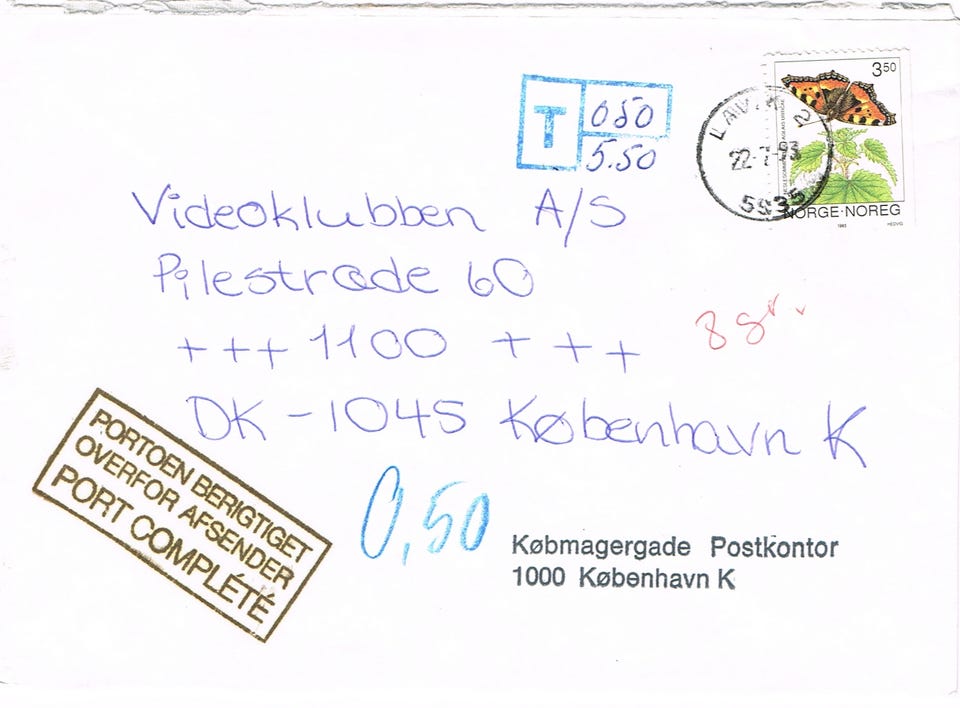 T 050
5.50
350
22-7-93
NORGE·NOREG
1993
HEDVIG
Videoklubben A/S
Pilestræde 60
+++ 1100 + + +
DK - 1045 København K
8 gr.
PORTOEN BERIGTIGET
OVERFOR AFSENDER
PORT COMPLÉTÉ
0,50
Købmagergade Postkontor
1000 København K